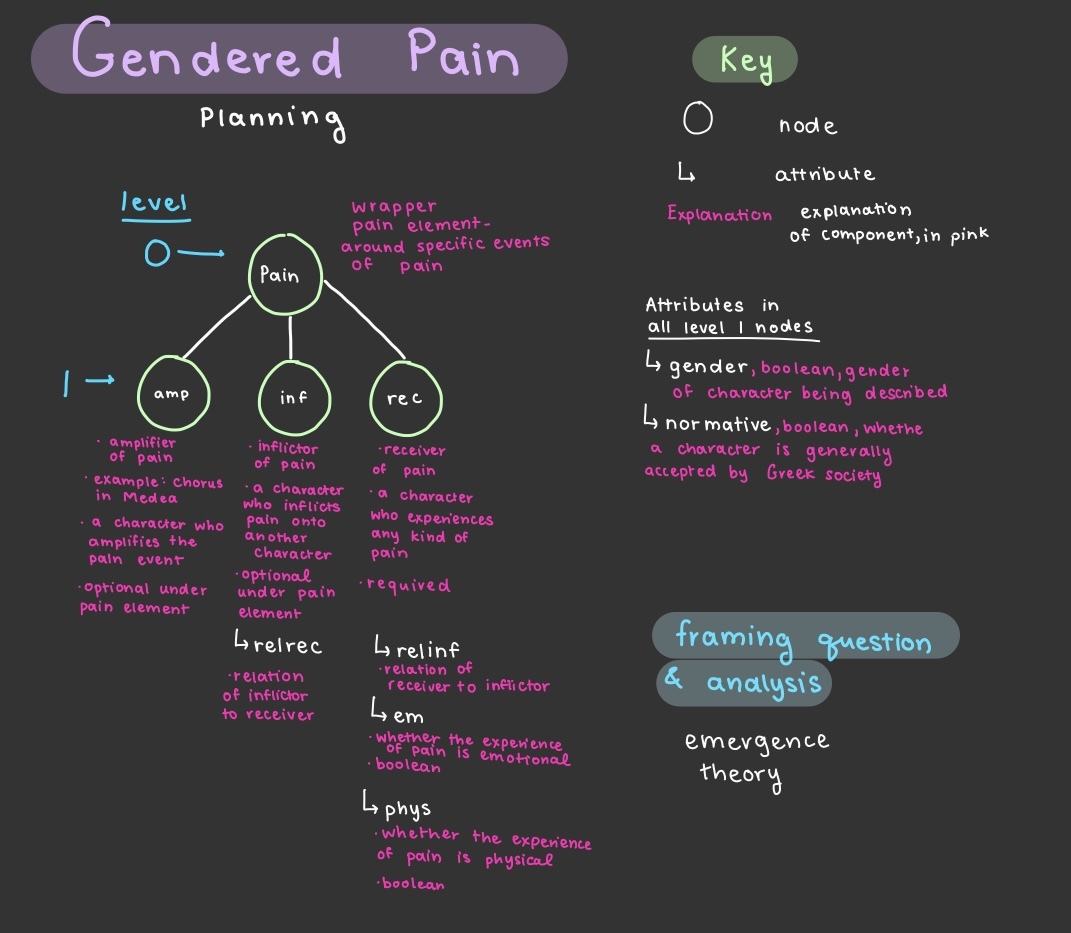 Gendered Pain
Planning
level
0
wrapper
pain element-
around specific events
of pain
Pain
1
amp
inf
rec
· amplifier
of pain
· example: Chorus
in Medea
· a character who
amplifies the
pain event
· optional under
pain element
· inflictor
of pain
· a character
who inflicts
pain onto
another
character
· optional
under pain
element
↳ relrec
· relation
of inflictor
to receiver
· receiver
of pain
· a character
who experiences
any kind of
pain
· required
↳ relinf
· relation of
receiver to inflictor
↳ em
· whether the experience
of pain is emotional
· boolean
↳ phys
· whether the experience
of pain is physical
· boolean
Key
node
↳ attribute
Explanation explanation
of component, in pink
Attributes in
all level 1 nodes
↳ gender, boolean, gender
of character being described
↳ normative, boolean, whethe
a character is generally
accepted by Greek society
framing question
& analysis
emergence
theory